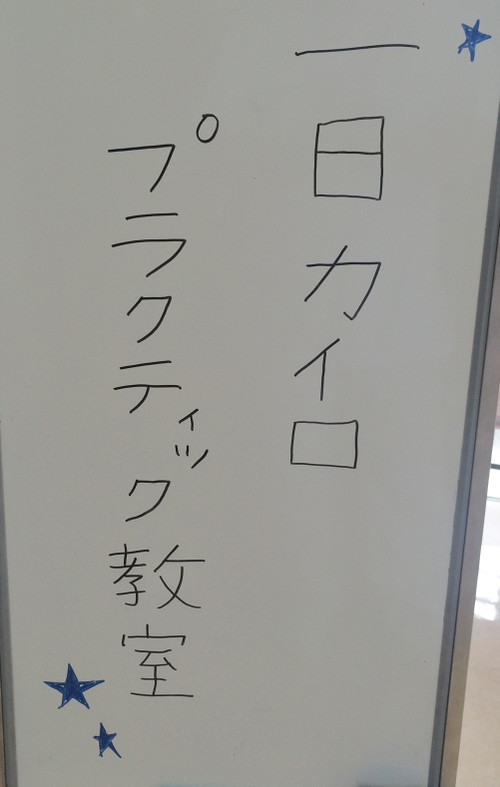 一日カイロ
プラクティック教室